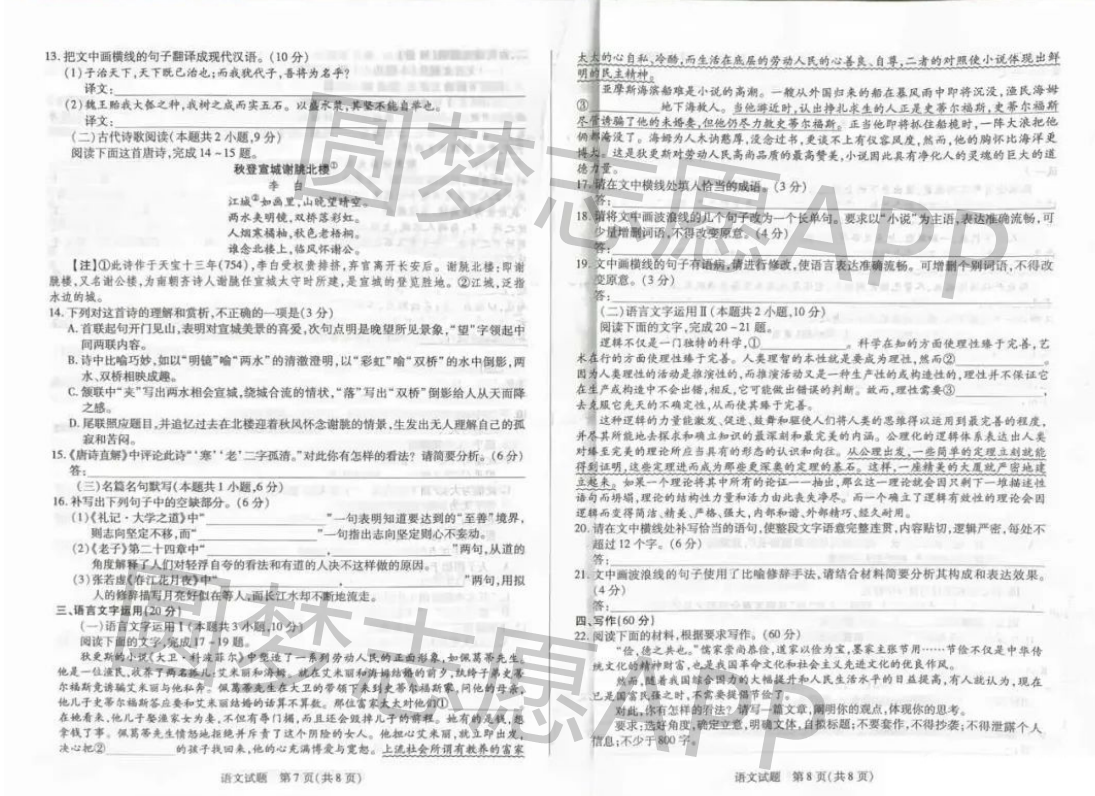 13. 把文中画横线的句子翻译成现代汉语。(10 分)
(1)子治天下,天下既已治也;而我犹代子,吾将为名乎?
译文:
(2)魏王贻我大瓠之种,我树之成而实五石。以盛水浆,其坚不能自举也。
译文:
(二)古代诗歌阅读(本题共 2 小题,9 分)
阅读下面这首唐诗,完成 14～15 题。
秋登宣城谢朓北楼①
李 白
江城②如画里,山晚望晴空。
两水夹明镜,双桥落彩虹。
人烟寒橘柚,秋色老梧桐。
谁念北楼上,临风怀谢公。
【注】①此诗作于天宝十三年(754),李白受权贵排挤,弃官离开长安后。谢朓北楼:即谢
朓楼,又名谢公楼,为南朝齐诗人谢朓任宣城太守时所建,是宣城的登览胜地。②江城,泛指
水边的城。
14. 下列对这首诗的理解和赏析,不正确的一项是(3 分)
A. 首联起句开门见山,表明对宣城美景的喜爱,次句点明是晚望所见景象,“望”字领起中
间两联内容。
B. 诗中比喻巧妙,如以“明镜”喻“两水”的清澈澄明,以“彩虹”喻“双桥”的水中倒影,两
水、双桥相映成趣。
C. 颔联中“夹”写出两水相会宣城,绕城合流的情状,“落”写出“双桥”倒影给人从天而降
之感。
D. 尾联照应题目,并追忆过去在北楼迎着秋风怀念谢朓的情景,生发出无人理解自己的孤
寂和苦闷。
15.《唐诗直解》中评论此诗“‘寒’‘老’二字孤清。”对此你有怎样的看法?请简要分析。(6 分)
答:
(三)名篇名句默写(本题共 1 小题,6 分)
16. 补写出下列句子中的空缺部分。(6 分)
(1)《礼记·大学之道》中“ ”一句表明知道要达到的“至善”境界,
则志向坚定不移,而“ ”一句指出志向坚定则心不妄动。
(2)《老子》第二十四章中“ , ”两句,从道的
角度解释了人们对轻浮自夸的看法和有道的人决不这样做的原因。
(3)张若虚《春江花月夜》中“ , ”两句,用拟
人的修辞描写月亮好似在等人,而长江水却不断地流走。
三、语言文字运用(20 分)
(一)语言文字运用Ⅰ(本题共 3 小题,10 分)
阅读下面的文字,完成 17～19 题。
狄更斯的小说《大卫·科波菲尔》中塑造了一系列劳动人民的正面形象,如佩葛蒂先生。
他是一位渔民,收养了两名孤儿:艾米丽和海姆。就在艾米丽和海姆结婚的前夕,纨绔子弟史蒂
尔福斯竟诱骗艾米丽与他私奔。佩葛蒂先生在大卫的带领下来到史蒂尔福斯家,问他的母亲,
他儿子史蒂尔福斯答应要和艾米丽结婚的话算不算数。那位富家太太对他的①
在她看来,他儿子娶渔家女为妻,不但有辱门楣,而且还会毁掉儿子的前程。她有的是钱,想
拿钱了事。佩葛蒂先生愤怒地拒绝并斥责了这个阴险的女人。他担心艾米丽,就立即出发,
决心把② 的孩子找回来,他的心充满博爱与宽恕。上流社会所谓有教养的富家
语文试题 第 7 页(共 8 页)
太太的心自私、冷酷,而生活在底层的劳动人民的心善良、自尊,二者的对照使小说体现出鲜
明的民主精神。
亚摩斯海滨船难是小说的高潮。一艘从外国归来的船在暴风雨中即将沉没,渔民海姆
③ 地下海救人。当他游近时,认出挣扎求生的人正是史蒂尔福斯,史蒂尔福斯
尽管诱骗了他的未婚妻,但他仍尽力救史蒂尔福斯。正当他即将抓住船桅时,一阵大浪把他
俩都淹没了。海姆为人木讷憨厚,没念过书,更谈不上有仪容风度,然而,他的胸怀比海洋更
博大。这是狄更斯对劳动人民高尚品质的最高赞美,小说因此具有净化人的灵魂的巨大的道
德力量。
17. 请在文中横线处填入恰当的成语。(3 分)
答:
18. 请将文中画波浪线的几个句子改为一个长单句。要求以“小说”为主语,表达准确流畅,可
少量增删词语,不得改变原意。(4 分)
答:
19. 文中画横线的句子有语病,请进行修改,使语言表达准确流畅。可增删个别词语,不得改
变原意。(3 分)
答:
(二)语言文字运用Ⅱ(本题共 2 小题,10 分)
阅读下面的文字,完成 20～21 题。
逻辑不仅是一门独特的科学,① 。科学在知的方面使理性臻于完善,艺
术在行的方面使理性臻于完善。人类理智的本性就是要成为理性,然而② 。
因为人类理性的活动是推演性的,而推演活动又是一种生产性的或构造性的,理性并不保证它
在生产或构造中不会出错,相反,它可能做出错误的判断。故而,理性需要③ ,
去克服它先天的不确定性,从而使其臻于完善。
这种逻辑的力量能激发、促进、鼓舞和驱使人们将人类的思维得以运用到最完善的程度,
并尽其所能地去探求和确立知识的最深刻和最完美的内涵。公理化的逻辑体系表达出人类
对臻至完美的理论所应当具有的形态的认识和向往。从公理出发,一些简单的定理立刻就能
得到证明,这些定理进而成为那些更深奥的定理的基石。这样,一座精美的大厦就严密地建
立起来。如果一个理论将其中所有的论证一一抽出,那么这一理论就会因只剩下一堆描述性
语句而坍塌,理论的结构性力量和活力由此丧失净尽。而一个确立了逻辑有效性的理论会因
逻辑而变得简洁、精美、严格、强大,内部和谐、外部精巧、经久耐用。
20. 请在文中横线处补写恰当的语句,使整段文字语意完整连贯,内容贴切,逻辑严密,每处不
超过 12 个字。(6 分)
答:
21. 文中画波浪线的句子使用了比喻修辞手法,请结合材料简要分析其构成和表达效果。
(4 分)
答:
四、写作(60 分)
22. 阅读下面的材料,根据要求写作。(60 分)
“俭,德之共也。”儒家崇尚恭俭,道家以俭为宝,墨家主张节用……节俭不仅是中华传
统文化的精神财富,也是我国革命文化和社会主义先进文化的优良作风。
然而,随着我国综合国力的大幅提升和人民生活水平的日益提高,有人就认为,现在
已是富民强之时,不需要提倡节俭了。
对此,你有怎样的看法?请写一篇文章,阐明你的观点,体现你的思考。
要求:选好角度,确定立意,明确文体,自拟标题;不要套作,不得抄袭;不得泄露个人
信息;不少于 800 字。
语文试题 第 8 页(共 8 页)
圆梦志愿APP
圆梦志愿APP